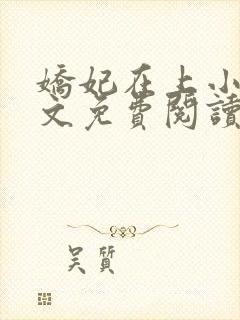 嬌妃在上小
文免費閱讀
吴質